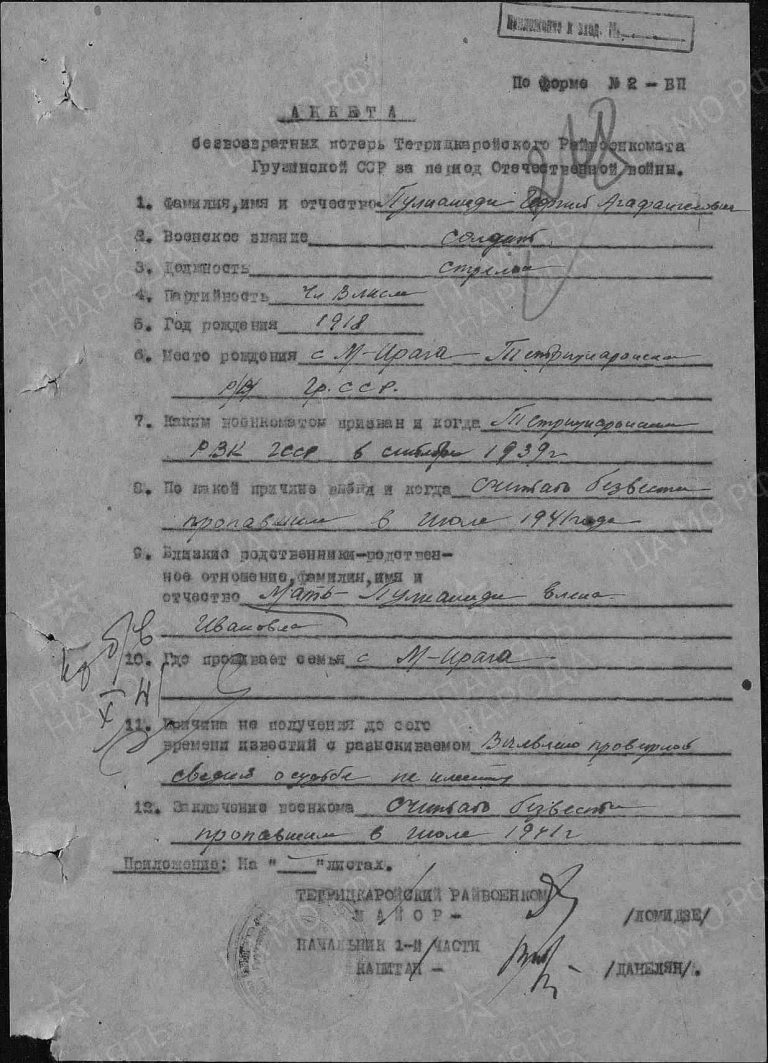 Приложение к вход. №
По форме № 2 – БП
АНКЕТА
безвозвратных потерь Тетрицкаройского Райвоенкомата
Грузинской ССР за период Отечественной войны.
1. Фамилия,имя и отчество Пулианиди Георгий Агафангелович
2. Воинское звание солдат
3. Должность стрелок
4. Партийность Чл ВЛКСМ
5. Год рождения 1918
6. Место рождения с М-Ирага Тетрицкаройский
р/н Гр.ССР.
7. Каким военкоматом призван и когда Тетрицкаройским
РВК ГССР в 1939г
8. По какой причине выбыл и когда считать безвести
пропавшим в июле 1941 года
9. Близкие родственники-родствен-
ное отношение,фамилия,имя и
отчество Мать Пулианиди Елена
Ивановна
10. Где проживает семья с М-Ирага
11. Причина не получения до сего
времени известий о разыскиваемом
сведений о судьбе не имеет
12. Заключение военкома считать безвести
пропавшим в июле 1941г
Приложение: На " — "листах.
ТЕТРИЦКАРОЙСКИЙ РАЙВОЕНКОМ
МАЙОР – /ЛОМИДЗЕ/
НАЧАЛЬНИК 1-й ЧАСТИ
КАПИТАН – /ДАНЕЛЯН/.